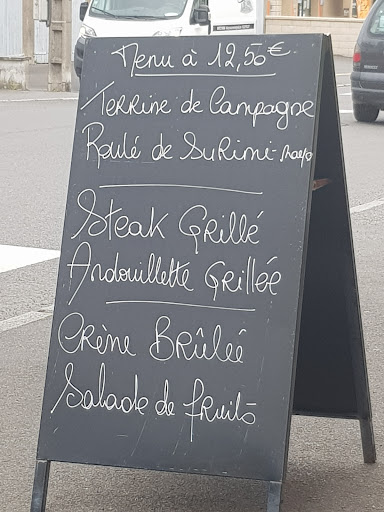 Menu à 12,50€
Terrine de Campagne
Roulé de Surimi-mayo
Steak Grillé
Andouillette Grillée
Crème Brûlée
Salade de fruits